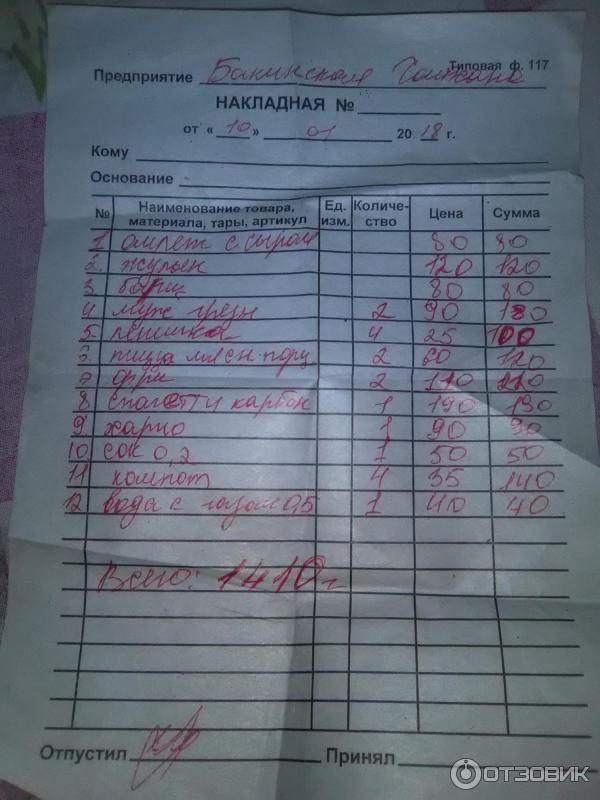 Типовая ф. 117
Предприятие Бакинская
НАКЛАДНАЯ №
от « 10 » 01 20 18 г.
Кому
Основание
№ Наименование товара, материала, тары, артикул Ед. изм. Количе-ство Цена Сумма
1 омлет с сыром 80 80
2. жульен 120 120
3. борщ 80 80
4 муж грезы 2 90 180
5. лепешка 4 25 100
6. пицца мл ен. порц 2 60 120
7 фри 2 110 210
8 спагетти карбон 1 190 190
9 харчо 1 90 90
10 сок 0,2 1 50 50
11 компот 4 35 140
12 вода с газом 0,5 1 40 40
Всего: 1410
Отпустил Принял
ОТЗОВИК